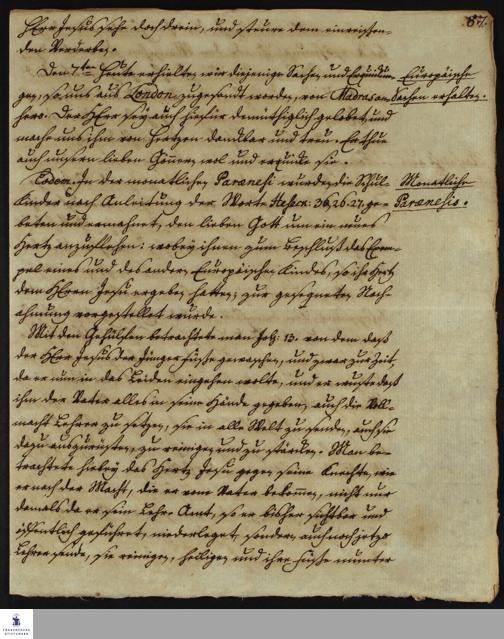 87.
HErr Jesus sehe doch drein, und steure dem einreissen-
den Verderben.
Den 7ten Heute erhielten wir diejenige Sachen und Erquickun-
gen, so uns aus London zugesandt worden, von Madras an-
hero. Der HErr sey auch hierfür demüthiglich gelobet, und
mache uns ihm von Hertzen danckbar und treu. Er thue
auch unsern lieben Gönnern wol und erquicke sie.
Europäische
Sachen erhalten.
Eodem. In der monatlichen Paraenesi wurden die Schul-
Kinder nach Anleitung der Worte Hesek: 36, 26. 27. ge-
beten und ermahnet, den lieben Gott um ein neues
Hertz anzuflehen: wobey ihnen zum Beschluß das Exem-
pel eines und des andern Europäischen Kindes, so ihr Hertz
dem HErrn Jesu ergeben hatten, zur gesegneten Nach-
ahmung vorgestellet wurde.
Monatliche
Paraenesis.
Mit den Gehülffen betrachtete man Joh: 13. von dem daß
der HErr Jesus der Jünger Füsse gewaschen, und zwar zur Zeit,
da er nun in das Leiden eingehen wolte, und er wuste daß
ihm der Vater alles in seine Hände gegeben, auch die Voll-
macht Lehrer zu setzen, sie in alle Welt zu senden, auch sie
dazu auszurüsten, zu reinigen und zu stärcken. Man be-
trachtete hiebey das Hertz Jesu gegen seine Knechte, wie
er nach der Macht, die er vom Vater bekommen, nicht nur
damals da er sein Lehr-Amt, so er bisher sichtbar und
öffentlich geführet, niederleget, sondern auch noch jetzo
Lehrer sende, sie reinigen, heiligen und ihre Füsse munter
FRANCKESCHE
STIFTUNGEN